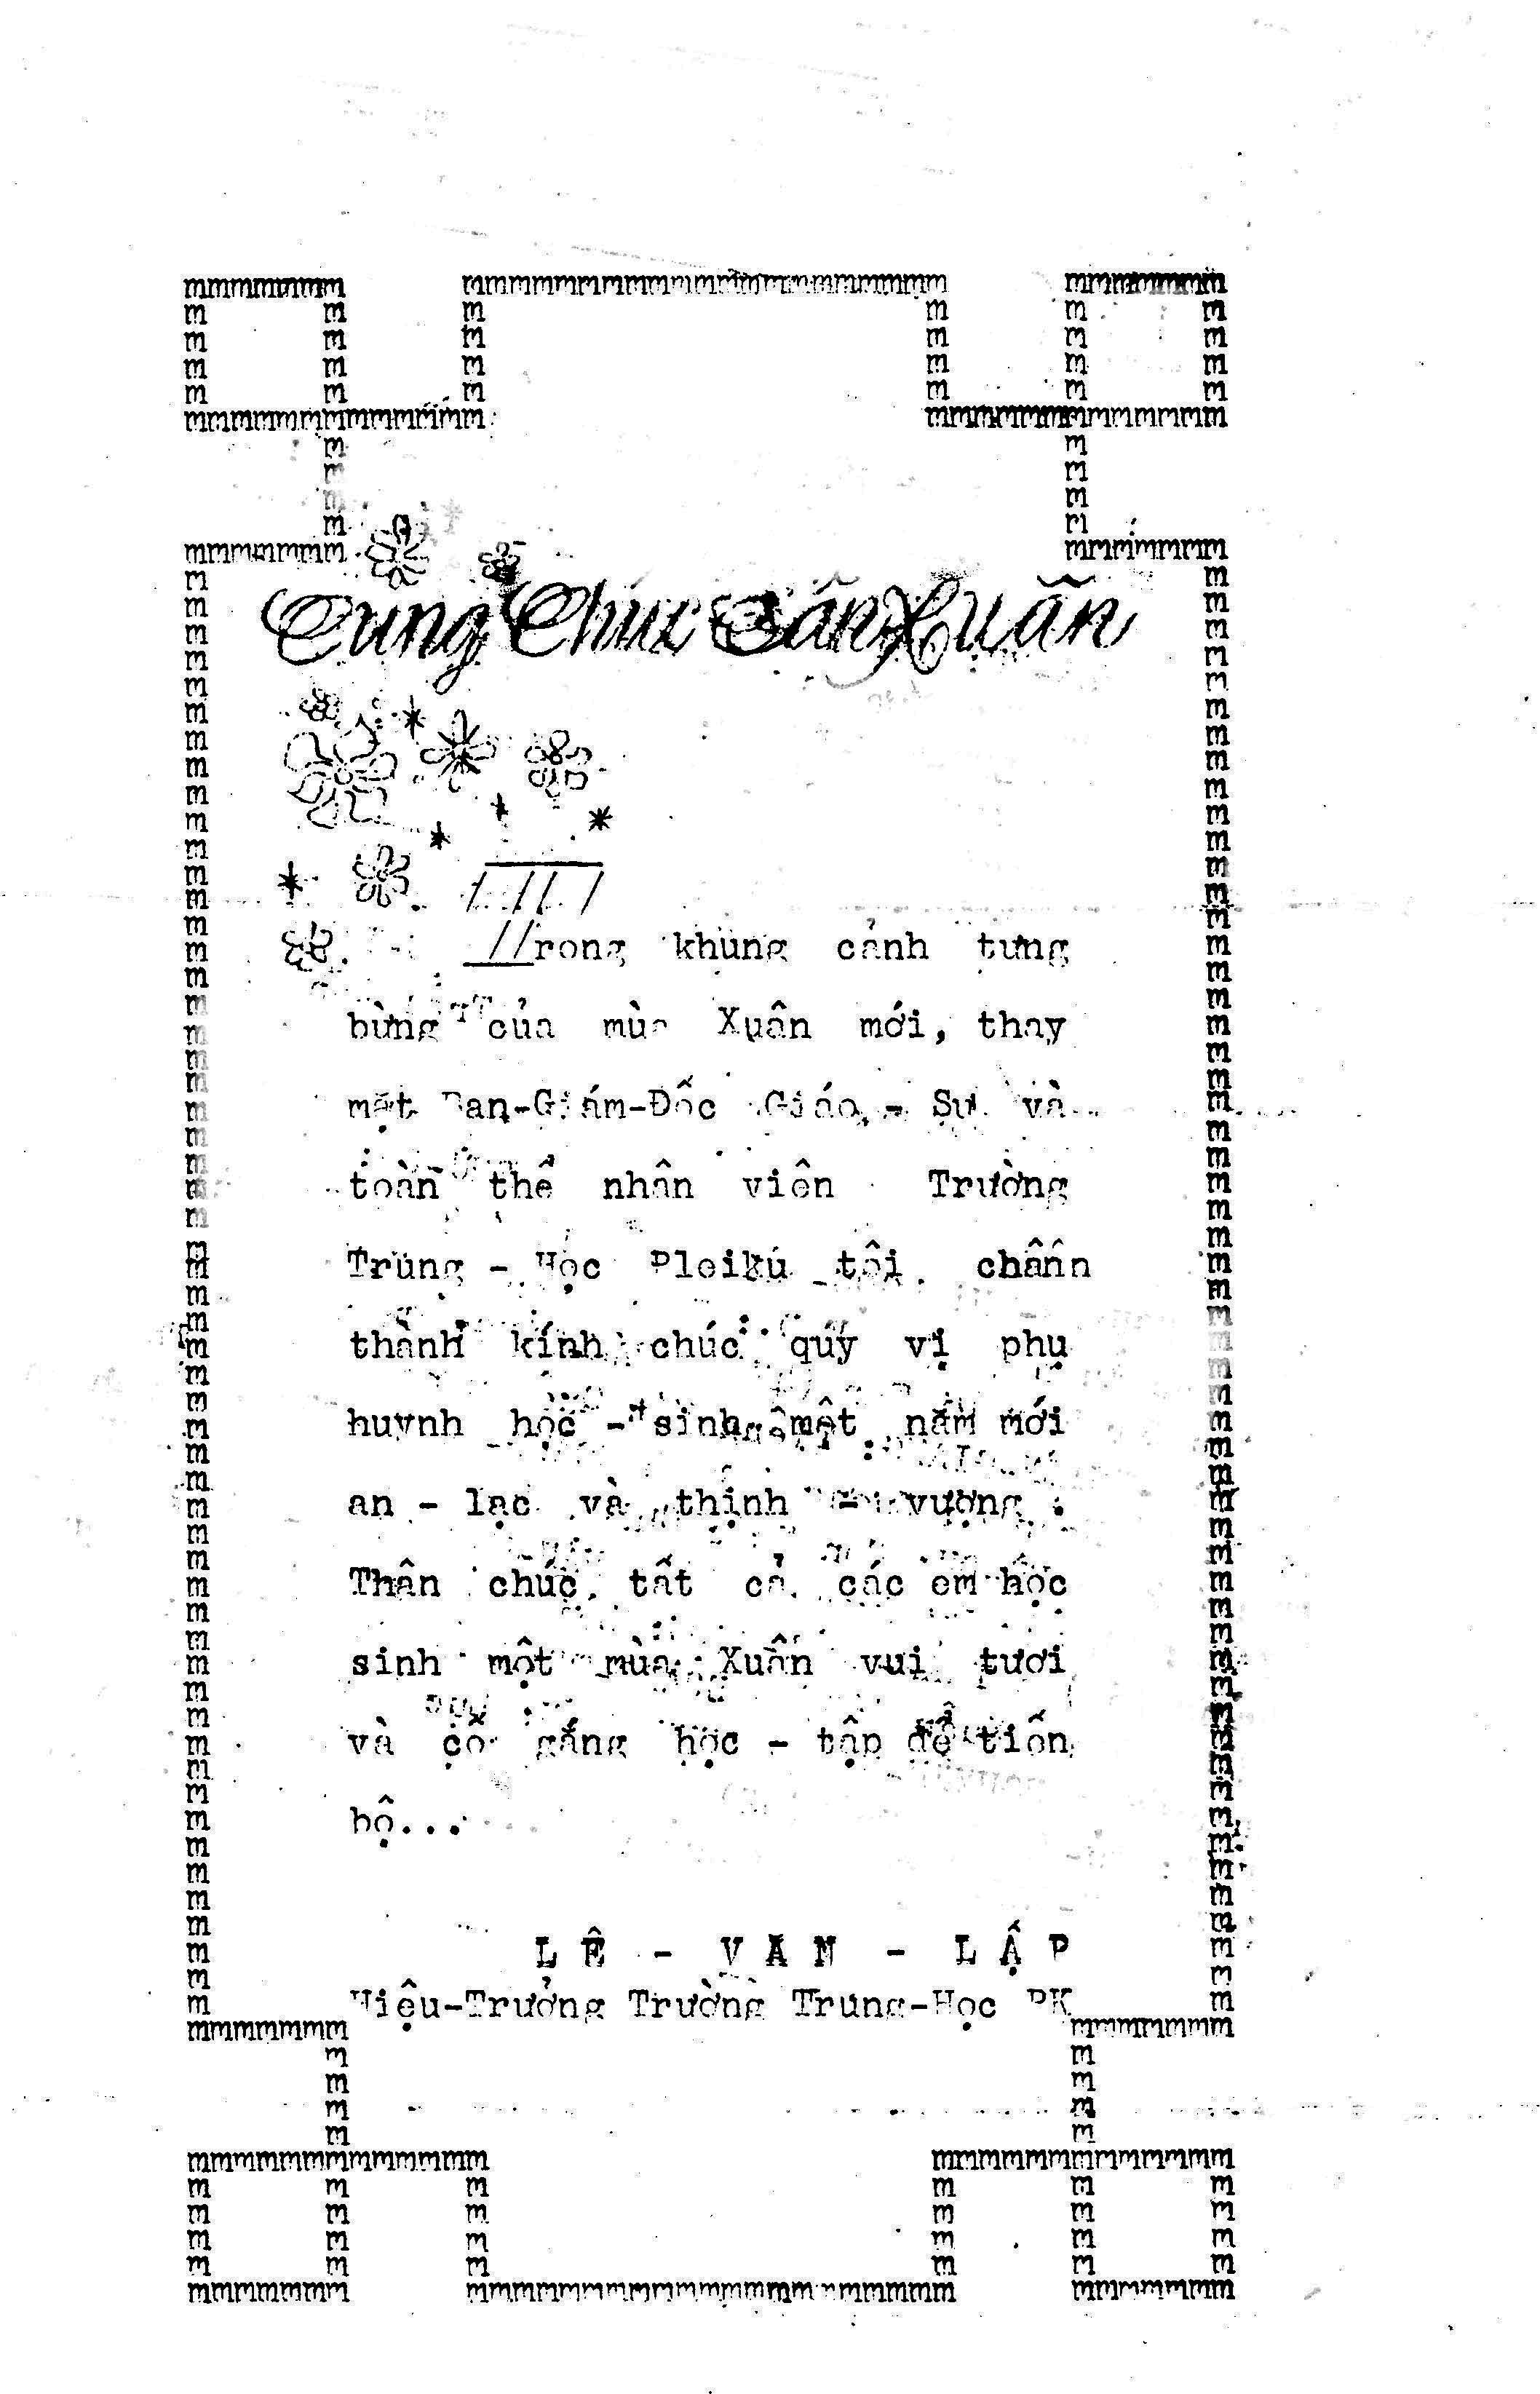 Cung Chúc Tân Xuân
Trong khung cảnh tưng
bừng của mùa Xuân mới, thay
mặt Ban-Giám-Đốc Giáo - Sư và
toàn thể nhân viên Trường
Trung - Học Pleikú tôi chân
thành kính chúc quý vị phụ
huynh học - sinh một năm mới
an - lạc và thịnh - vượng .
Thân chúc tất cả các em học
sinh một mùa Xuân vui tươi
và cố gắng học - tập để tiến
bộ...
LÊ - VĂN - LẬP
Hiệu-Trưởng Trường Trung-Học PK